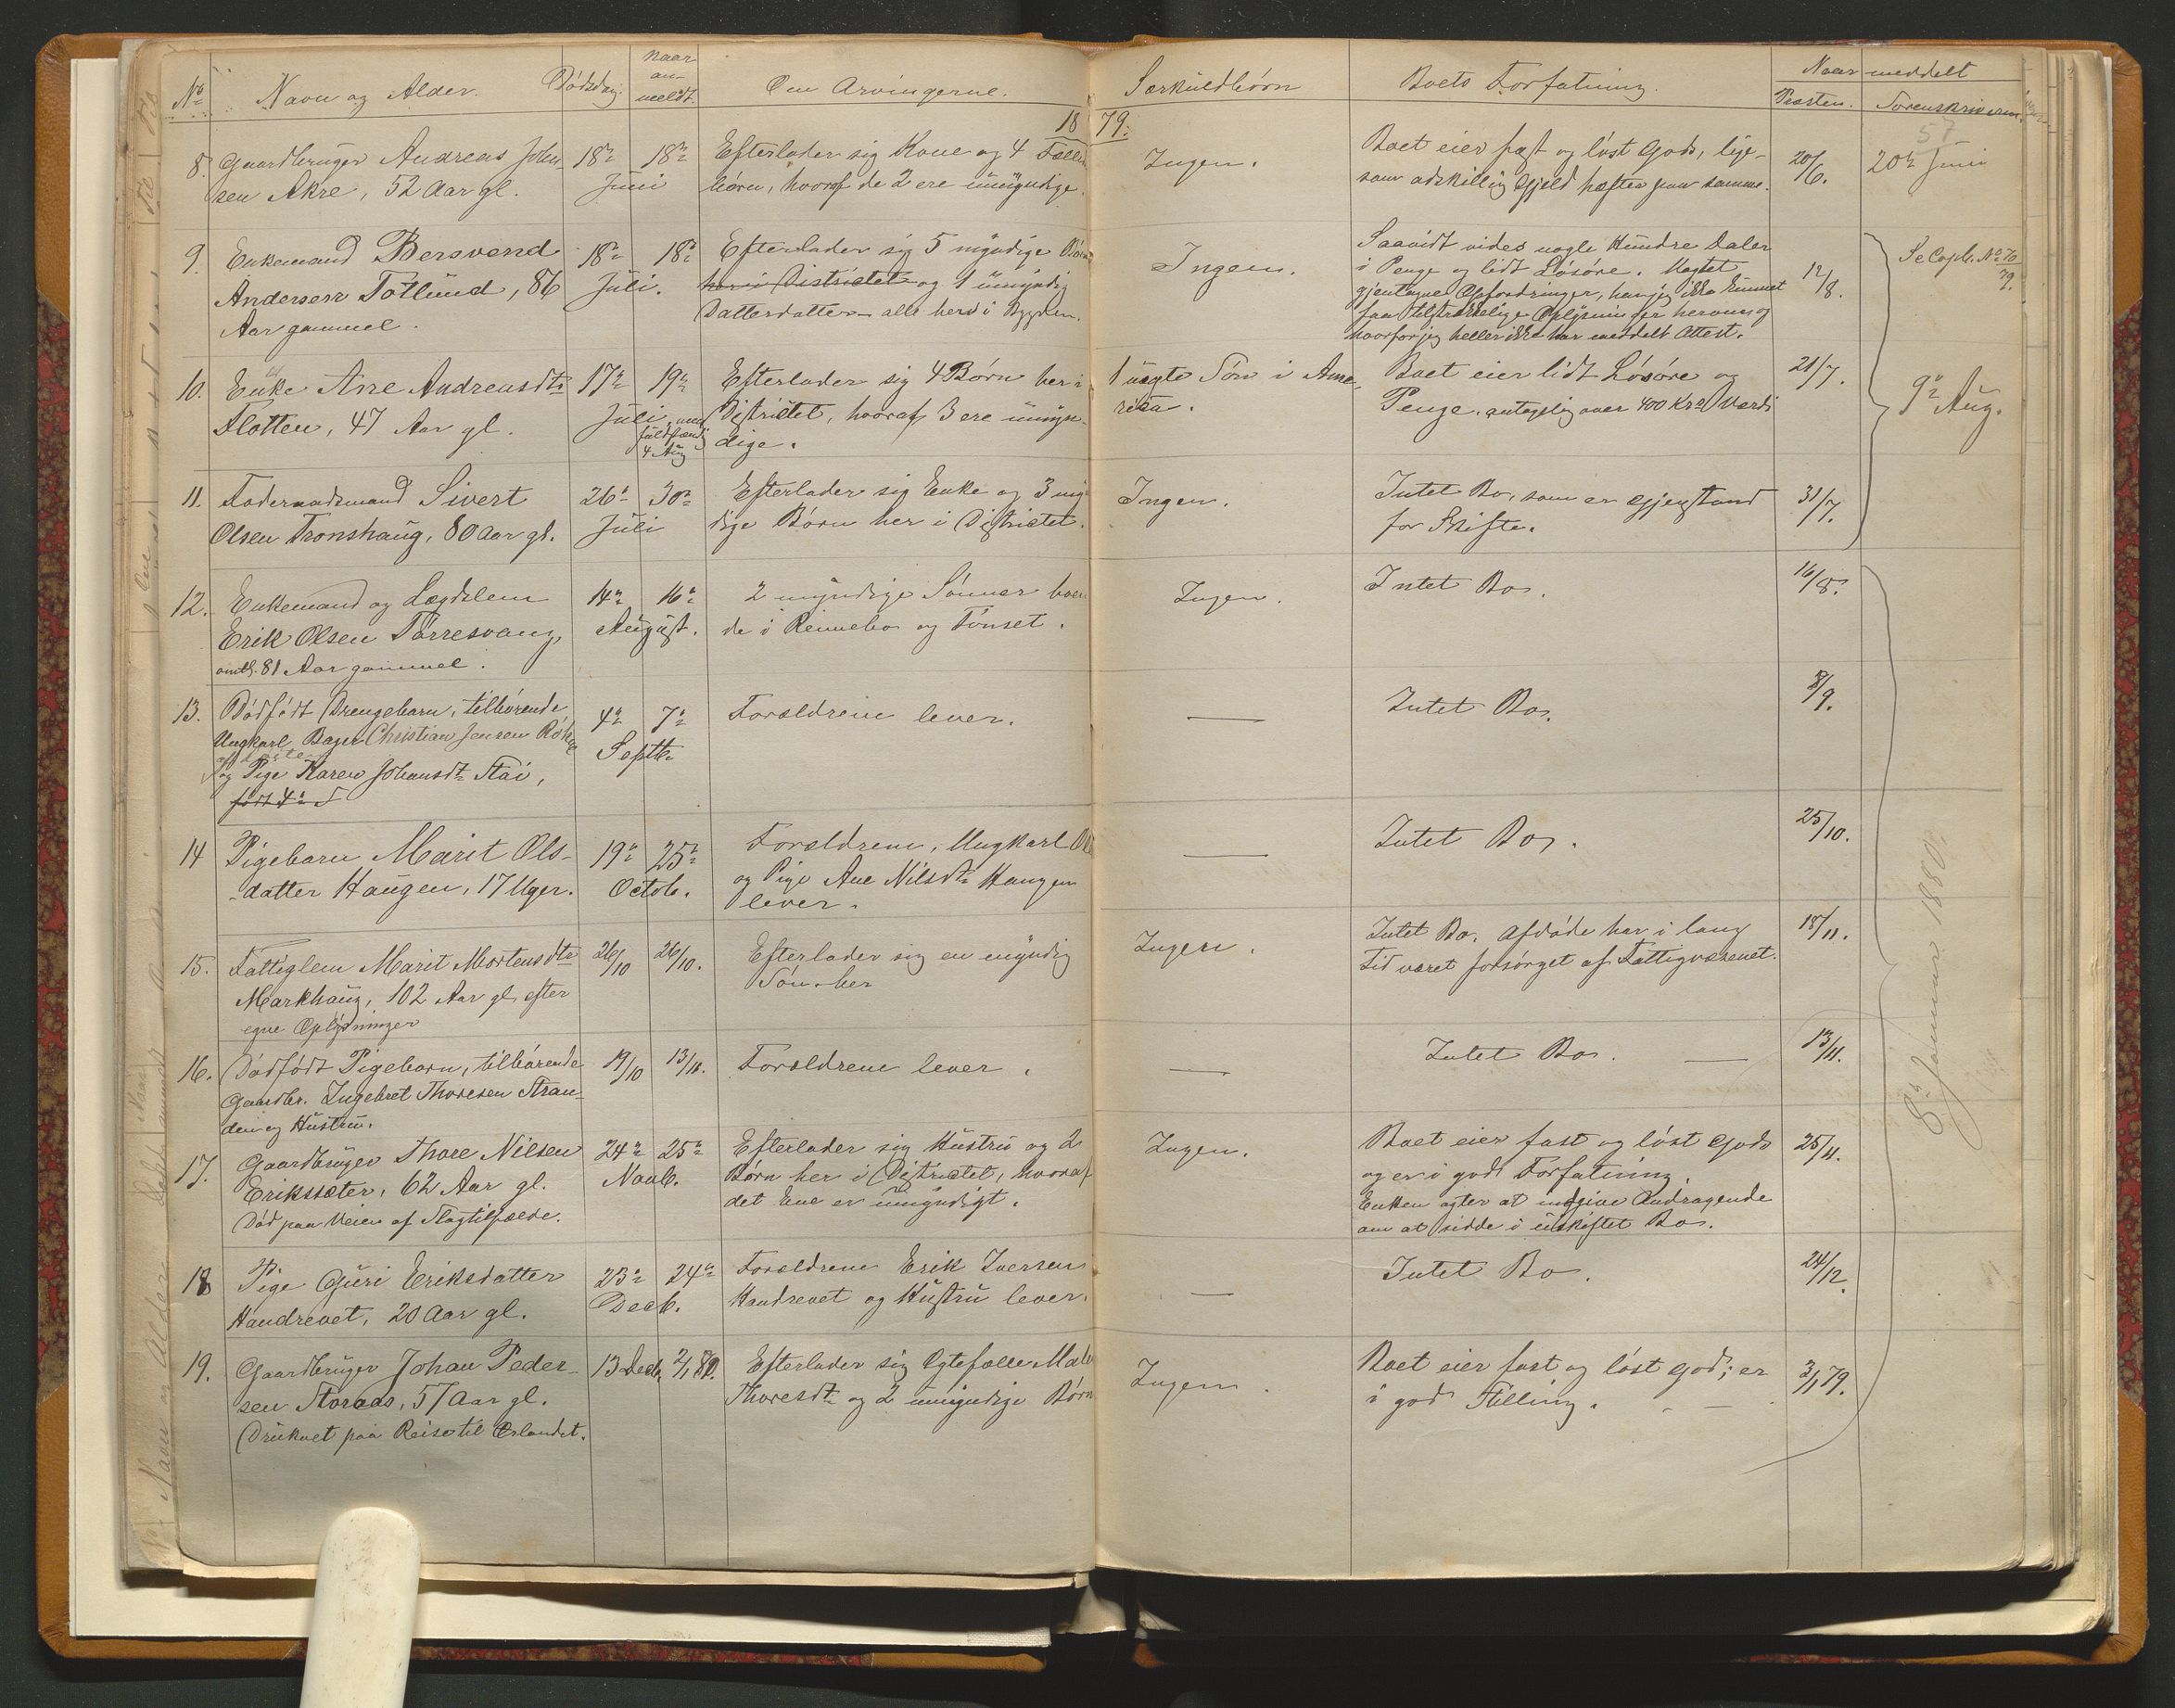 No Navn og Alder. Dödsdag. Naar anmeldt. Om Arvingerne. Særkuldbörn Boets Forfatning. Naar meddelt
Presten. Sorenskriveren.
1879.
57
8. Gaardbruger Andreas John-
sen Akre, 52 Aar gl.
18n Juni 18n
Efterlader sig Kone og 4 Fælles
börn, hvoraf de 2 ere umyndige.
Ingen.
Boet eier fast og löst Gods, lige-
som adskillig Gjeld hæfter paa samme.
20/6.
20n Juni
9. Enkemand Bersvend
Andersen Totlund, 86
Aar gammel.
18n Juli. 18n
Efterlader sig 5 myndige Börn
her i Districtet og 1 umyndig
Datterdatter – alle her i Bygden.
Ingen.
Saavidt vides nogle Hundre Daler
i Penge og lidt Lösöre. Uagtet
gjentagne Opfordringer, har jeg ikke kunnet
faa tilstrækkelige Oplysninger herom og
hvorfor jeg heller ikke har meddelt Attest.
12/8.
Se Copb. No 70
79.
10. Enke Ane Andreasdtr
Flotten, 47 Aar gl.
17n Juli 19n
fuldstændig
4 Aug
Efterlader sig 4 Börn her i
Districtet, hvoraf 3 ere umyn-
dige.
1 uægte Sön i Ame-
rica.
Boet eier lidt Lösöre og
Penge, antagelig over 400 Kr Værdi
21/7.
9n Aug.
11. Foderaadsmand Sivert
Olsen Tronshaug, 80 Aar gl.
26n Juli 30n
Efterlader sig Enke og 3 myn
dige Börn her i Districtet.
Ingen.
Intet Bo, som er Gjenstand
for Skifte.
31/7.
12. Enkemand og Lægdslem
Erik Olsen Torresvang,
omtr. 81 Aar gammel.
14n August. 16n
2 myndige Sönner boen
de i Rennebo og Tönset.
Ingen.
Intet Bo.
16/8.
13. Dödfödt Drengebarn, tilhörende
Ungkarl Bager Christian Jensen
og Pige Karen Johansdtr Stai,
födt 4n S
4n Septb. 7n
Forældrene lever.
—
Intet Bo.
8/9.
14 Pigebarn Marit Ols-
datter Haugen, 17 Uger.
19n Octob. 25n
Forældrene, Ungkarl
og Pige Ane Nilsdtr Haugen
lever.
—
Intet Bo.
25/10.
15. Fattiglem Marit Mortensdtr
Markhaug, 102 Aar gl. efter
egne Oplysninger
26/10 26/10.
Efterlader sig en myndig
Sön her
Ingen.
Intet Bo. Afdöde har i lang
Tid været forsörget af Fattigvæsenet.
18/11.
16. Dödfödt Pigebarn, tilhörende
Gaardbr. Ingebret Thoresen Stran-
den og Hustru.
19/10 13/11.
Forældrene lever.
—
Intet Bo. —
13/11.
17. Gaardbruger Thore Nilsen
Erikssæter, 62 Aar gl.
Död paa Veien af Slagtilfælde.
24n Novb. 25n
Efterlader sig Hustru og 2
Börn her i Districtet, hvoraf
det Ene er umyndigt.
Ingen.
Boet eier fast og löst Gods
og er i god Forfatning.
Enken agter at indgive Andragende
om at sidde i uskiftet Bo.
25/11.
18 Pige Guri Eriksdatter
Haudrevet, 20 Aar gl.
23n Decb. 24n
Forældrene Erik Iversen
Haudrevet og Hustru lever.
—
Intet Bo.
24/12.
19. Gaardbruger Johan Peder-
sen Storaas, 57 Aar gl.
Druknet paa Reise til Örlandet.
13 Decb. 2/1 80.
Efterlader sig Ægtefælle
Thoresdtr og 2 umyndige Börn
Ingen.
Boet eier fast og löst God; er
i god Stilling. – –
3/1 79.
8n Januar 1880.